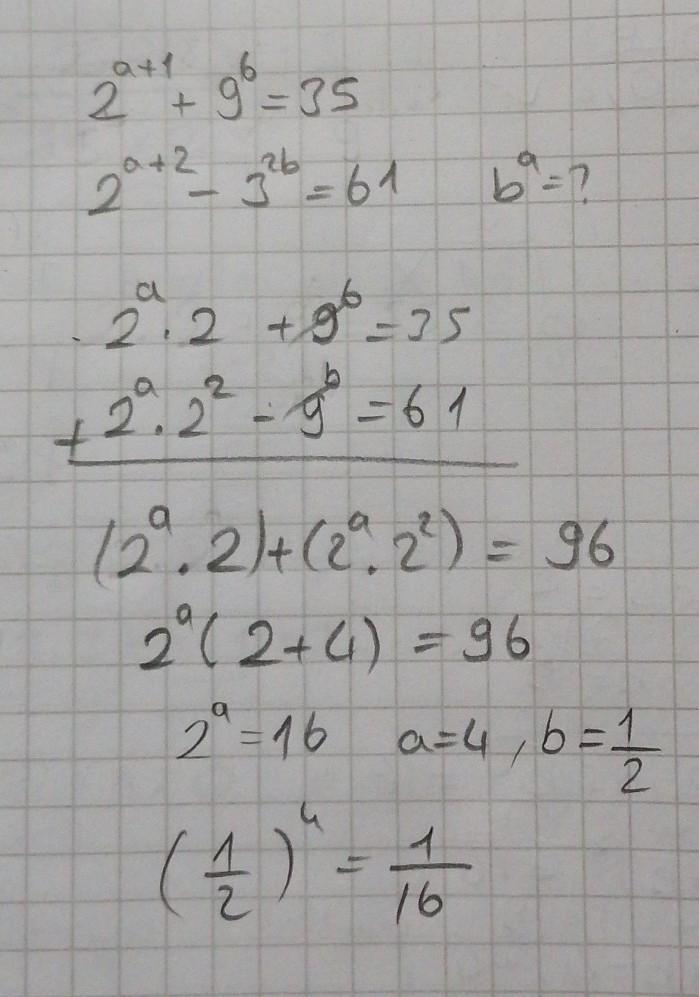 2^{a+1} + 9^b = 35
2^{a+2} - 3^{2b} = 61 b^a = ?
2^a . 2 + 9^b = 35
+ 2^a . 2^2 - 9^b = 61
(2^a . 2) + (2^a . 2^2) = 96
2^a (2 + 4) = 96
2^a = 16 a = 4 , b = \frac{1}{2}
(\frac{1}{2})^4 = \frac{1}{16}